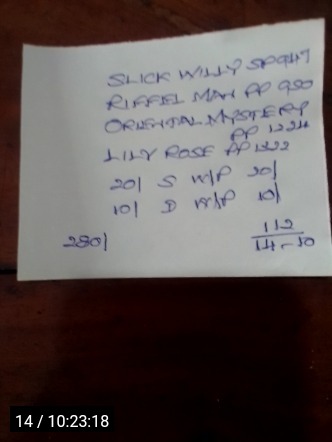 SLICK WILLY SP 947
RIFFEL MAN PP 950
ORIENTAL MYSTERY
PP 1224
LILY ROSE PP 1322
20/ S W/P 20/
10/ D W/P 10/
280/
112
14-10
14 / 10:23:18